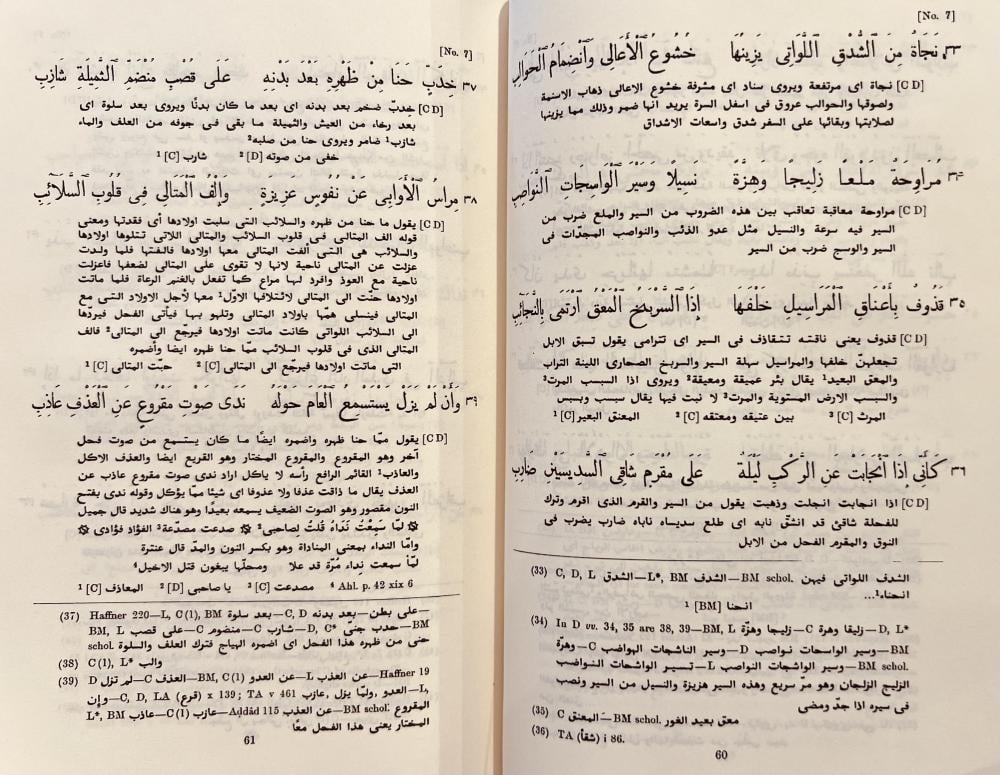 [No. 7]
٣٣ نَجَاةٌ مِنَ الشُّدْقِ اللَّوَاتِي يَزِينُهَا خُشُوعُ الْأَعَالِي وَانْضِمَامُ الْحَوَالِبِ
[C D] نجاة اى مرتفعة ويروى سناد اى مشرفة خشوع الاعالى ذهاب الاسنمة
ولصوقها والحوالب عروق فى اسفل السرة يريد انها ضمر وذلك مما يزينها
لصلابتها وبقائها على السفر شدق واسعات الاشداق
٣٤ مُرَاوِحَةٌ مَلْعًا زَلِيجًا وَهِزَّةً نَسِيلًا وَسَيْرَ الْوَاسِجَاتِ النَّوَاصِبِ
[C D] مراوحة معاقبة تعاقب بين هذه الضروب من السير والملع ضرب من
السير فيه سرعة والنسيل مثل عدو الذئب والنواصب المجدّات فى
السير والوسج ضرب من السير
٣٥ قَذُوفٌ بِأَعْنَاقِ الْمَرَاسِيلِ خَلْفَهَا إِذَا السَّرْبَخُ الْمَعْقُ ارْتَمَى بِالنَّجَائِبِ
[C D] قذوف يعنى ناقته تتقاذف فى السير اى تترامى يقول تسبق الابل
تجعلهنّ خلفها والمراسيل سهلة السير والسربخ الصحارى اللينة التراب
والمعق البعيد¹ يقال بئر عميقة ومعيقة² ويروى اذا السبسب المرت³
والسبسب الارض المستوية والمرت³ لا نبت فيها يقال سبسب وبسبس
¹ [C] المعنق البعير ² [C] بين عتيقه ومعتقه ³ [C] المرث
٣٦ كَأَنِّي إِذَا انْجَابَتْ عَنِ الرَّكْبِ لَيْلَةٌ عَلَى مُقْرَمٍ شَاقِي السَّدِيسَيْنِ ضَارِبِ
[C D] اذا انجابت انجلت وذهبت يقول من السير والقرم الذى اقرم وترك
للفحلة شاقئ قد انشقّ نابه اى طلع سديساه ناباه ضارب يضرب فى
النوق والمقرم الفحل من الابل
(33) C, D, L الشدق—L*, BM الشدف—BM schol. الشدف اللواتى فيهن
انحناء¹...
¹ [BM] انحنا
(34) In D vv. 34, 35 are 38, 39—BM, L زليجا وهزّة—C زليقا وهرة—D, L*
وهزّة—C وسير الناشجات الهواصب—D وسير الواسحات نواصب—BM
وسير الواشجات النواصب—L تسير الواشحات النواضب—BM schol.
الزليج الزلجان وهو مرّ سريع وهذه السير هزيزة والنسيل من السير ونصب
فى سيره اذا جدّ ومضى
(35) C المعنق—BM schol. معق بعيد الغور
(36) TA (شقأ) i 86.
60
[No. 7]
٣٧ خِدَبٌّ حَنَا مِنْ ظَهْرِهِ بَعْدَ بَدْنِهِ عَلَى قُصْبِ مُنْضَمِّ الثَّمِيلَةِ شَازِبِ
[C D] خِدَبّ ضخم بعد بدنه اى بعد ما كان بدنًا ويروى بعد سلوة اى
بعد رخاء من العيش والثميلة ما بقى فى جوفه من العلف والماء
شازب¹ ضامر ويروى حنا من صلبه²
¹ [C] شارب ² [D] خفى من صوته
٣٨ مِرَاسُ الْأَوَابِي عَنْ نُفُوسٍ عَزِيزَةٍ وَإِلْفُ الْمَتَالِي فِي قُلُوبِ السَّلَائِبِ
[C D] يقول ما حنا من ظهره والسلائب التى سلبت اولادها أى فقدتها ومعنى
قوله الف المتالى فى قلوب السلائب والمتالى اللاتى تتلوها اولادها
والسلائب هى التى ألفت المتالى معها اولادها فالفتها فلما ولدت
عزلت عن المتالى ناحية لانها لا تقوى على المتالى لضعفها فاعزلت
ناحية مع العوذ وافرد لها مراع كما تفعل بالغنم الرعاة فلما ماتت
اولادها حنّت الى المتالى لائتلافها الاوّل¹ معها لأجل الاولاد التى مع
المتالى فينسلى همّها باولاد المتالى وتلهو بها فيأتى الفحل فيردّها
الى السلائب اللواتى كانت ماتت اولادها فيرجّع الى المتالى² فالف
المتالى الذى فى قلوب السلائب ممّا حنا ظهره ايضا وأضمره
¹ [C] حبّت المتالى ² [C] التى ماتت اولادها فيرجّع الى المتالى
٣٩ وَأَنْ لَمْ يَزَلْ يَسْتَسْمِعُ الْعَامَ حَوْلَهُ نَدَى صَوْتِ مَقْرُوعٍ عَنِ الْعَذْفِ عَاذِبِ
[C D] يقول ممّا حنا ظهره واضمره ايضًا ما كان يستسمع من صوت فحل
آخر وهو المقروع والمقروع المختار وهو القريع ايضا والعذف الاكل
والعاذب¹ القائم الرافع رأسه لا ياكل اراد ندى صوت مقروع عاذب عن
العذف يقال ما ذاقت عذفا ولا عذوفا اى شيئا ممّا يؤكل وقوله ندى بفتح
النون مقصور وهو الصوت الضعيف يسمعه بعيدًا وهو هناك شديد قال جميل
۞ لمّا سمِعْتُ نَدَاهُ قُلتُ لِصاحبى² ۞ صدعت مصدّعة³ الفؤاد فؤادى ۞
وامّا النداء بمعنى المناداة وهو بكسر النون والمدّ قال عنترة
لمّا سمعت نداء مُرّة قد علا ومحلّها يبغون قتل الاخيل⁴
¹ [C] المعاذف ² [D] يا صاحبى ³ [C] مصدعت ⁴ Ahl. p. 42 xix 6
(37) Haffner 220—L, C(1), BM بعد سلوة—C, D بعد بدنه—على بطن—
BM, L على قصب—C منضوم—C شارب—D, C* حدب جنىّ—BM
schol. حنى من ظهره هذا الفحل اى اضمره الهياج فترك العلف والسلوة
(38) C(1), L* والب
(39) D لم تزل—C العذف—BM, C(1) عن العدو—L عن العذب—Haffner 19
L, العدو, ولمّا يزل, عازب—C, D, LA (قرع) x 139; TA v 461 وإن—
L*, BM عاذب—C(1) عازب—Aḍdâd 115 عن العذب—BM schol. المقروع
المختار يعنى هذا الفحل معًا
61